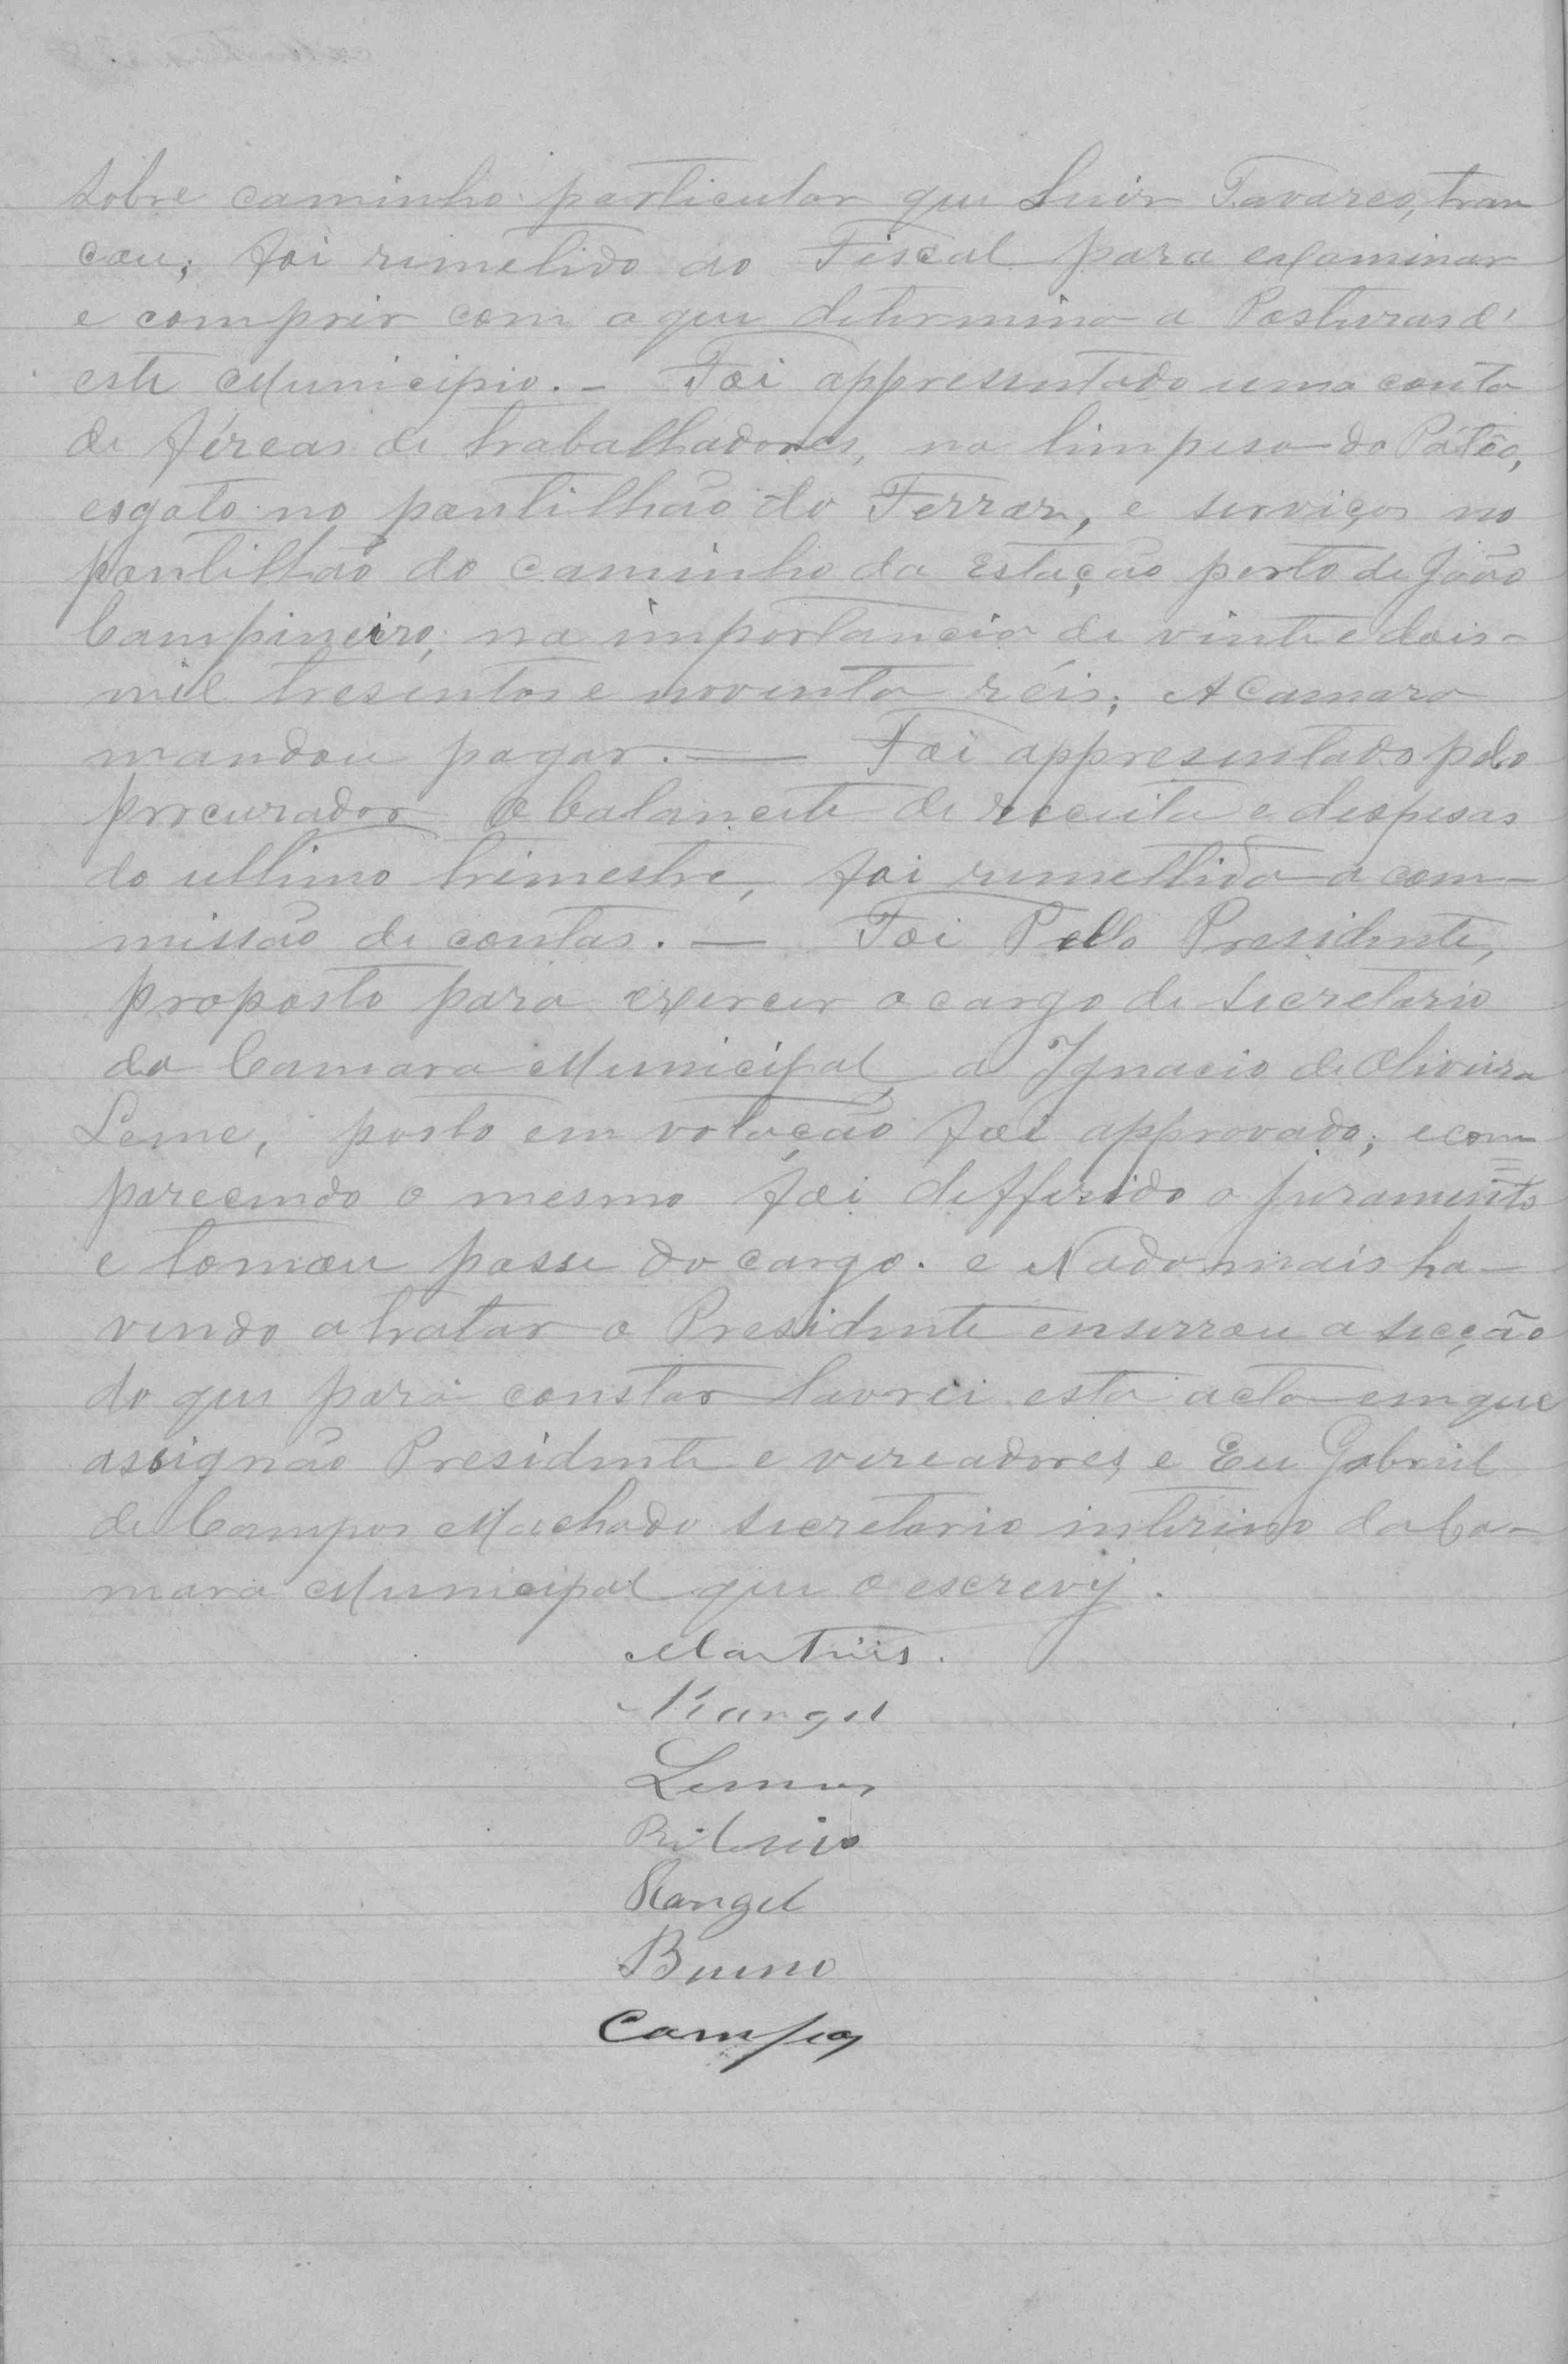 sobre caminho particular que Luiz Tavares, tran
cou; foi rimetido ao Fiscal para examinar
e comprir com o que determina a Posturas d'
este Municipio. - Foi appresentado uma conta
de féreas de trabalhadores, na limpesa do Páteo,
esgoto no pontilhão do Ferraz, e serviços no
pontilhão do caminho da Estação perto de João
Campineiro, na importancia de vinte e dois-
mil tresentos e noventa réis; A Camara
mandou pagar. — Foi appresentado pelo
procurador o balancete de receita e despesas
do ultimo trimestre, foi remettido a com-
missão de contas. — Foi Pello Presidente,
proposto para exercer o cargo de secretario
da Camara Municipal, a Ignacio de Oliveira
Leme, posto em votação foi approvado; e com=
parecendo o mesmo foi defferido o juramento
e tomou posse do cargo. e Nado mais ha-
vendo a tratar o Presidente enserrou a secção
do que para constar lavrei esta acta em que
assignão Presidente e vereadores, e Eu Gabriel
de Campos Machado secretario interino da Ca-
mara Municipal que o escrevy.
Martins.
Rangel
Lemes
Rangel
Bueno
Campos